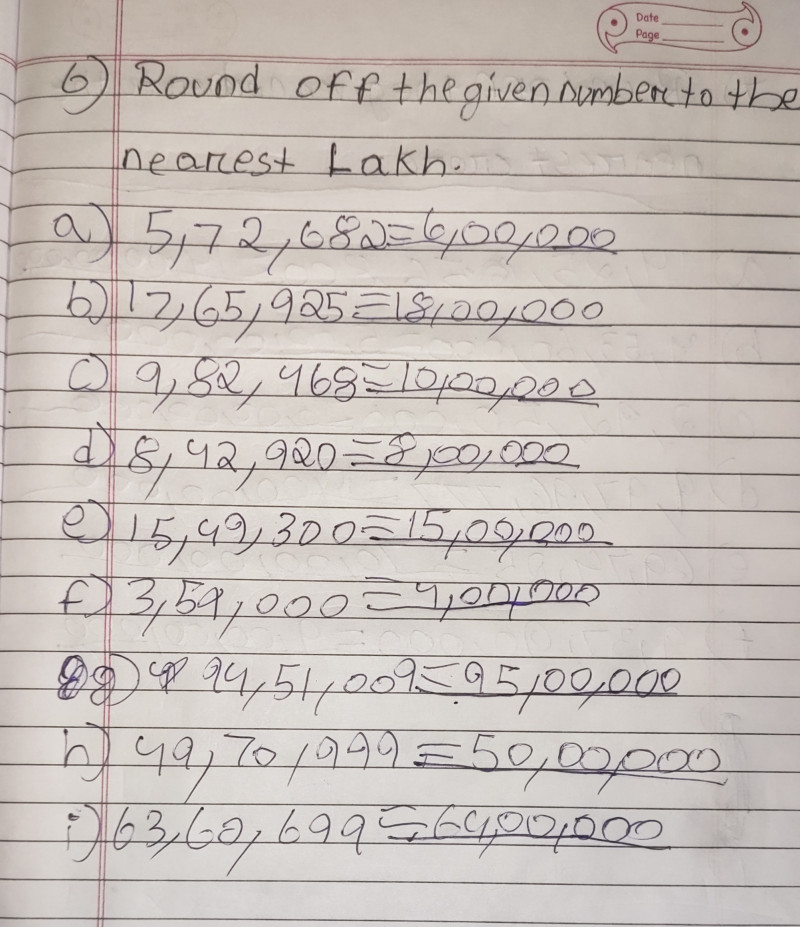 Date
Page
6) Round off the given number to the
nearest Lakh.
a) 5,72,682=6,00,000
b) 17,65,925=18,00,000
c) 9,82,468=10,00,000
d) 8,42,920=8,00,000
e) 15,49,300=15,00,000
f) 3,59,000=4,00,000
g) 94,51,009=95,00,000
h) 49,70,999=50,00,000
i) 63,60,699=64,00,000